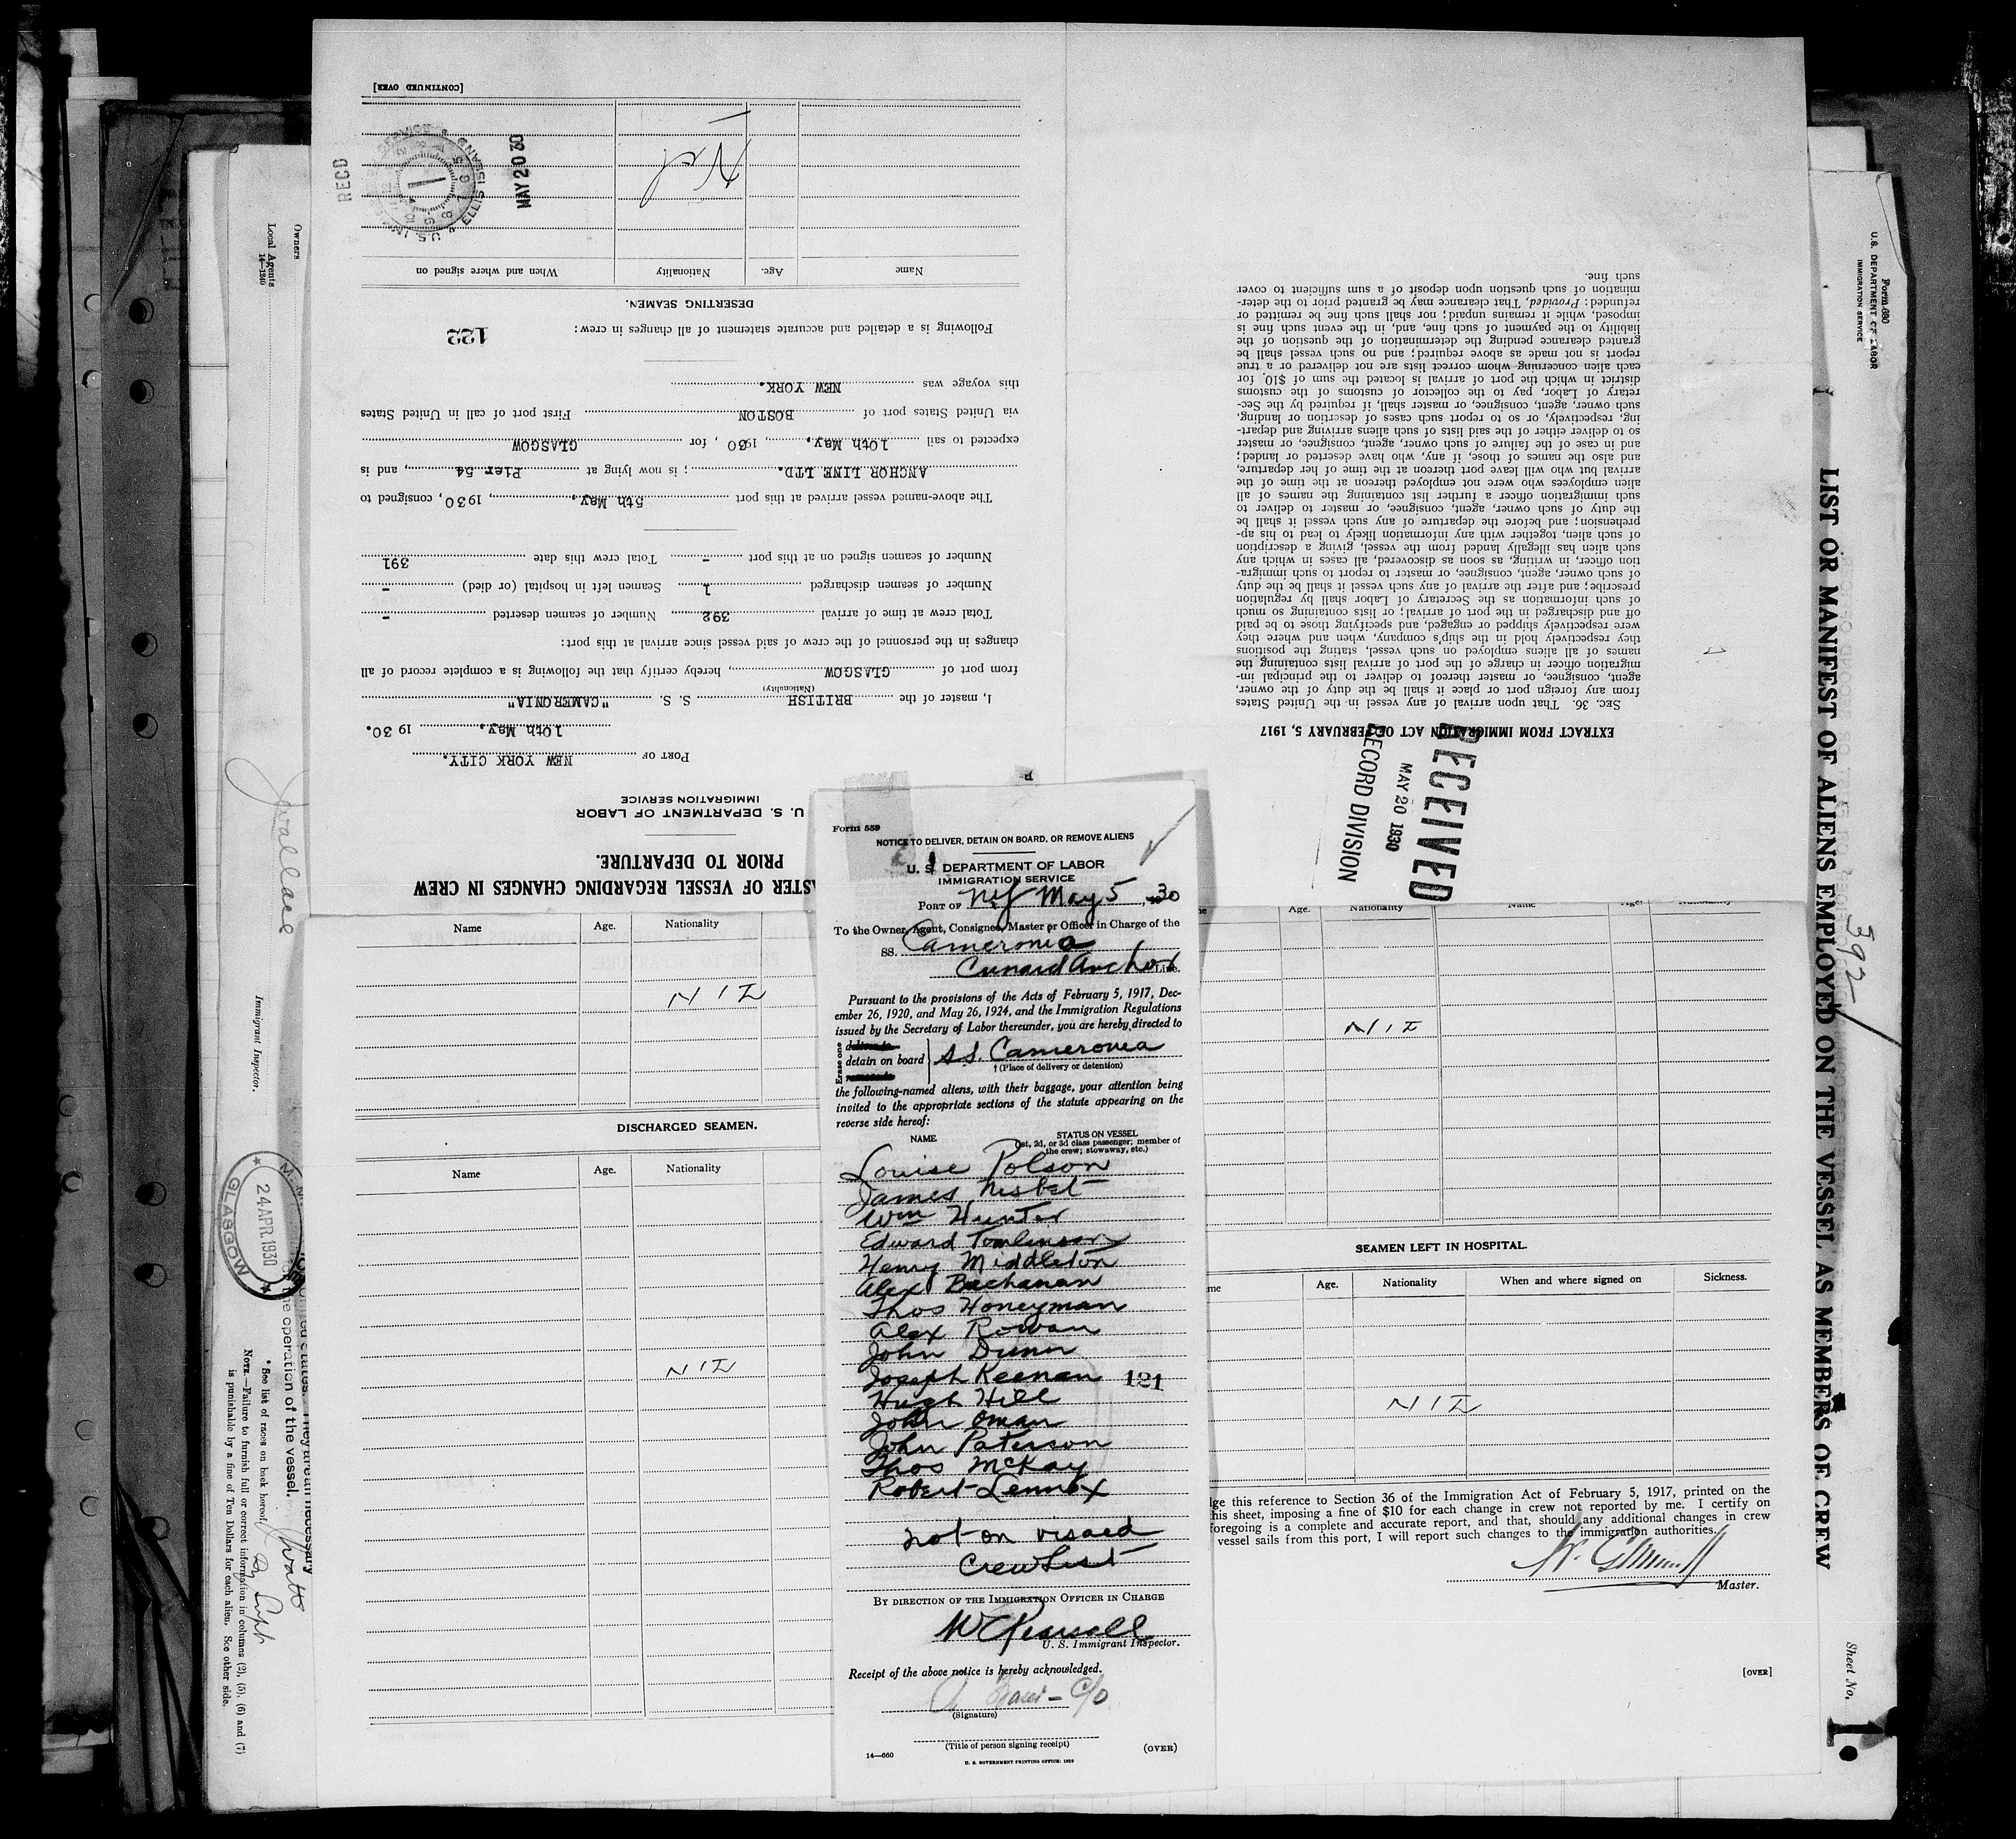 [CONTINUED OVER]
RECD
MAY 20 30
U.S. ELLIS ISLAND
Nil
Name Age. Nationality When and where signed on
DESERTING SEAMEN.
Following is a detailed and accurate statement of all changes in crew:
122
this voyage was NEW YORK.
via United States port of BOSTON First port of call in United States
expected to sail 10th May, 1930, for GLASGOW
ANCHOR LINE LTD. ; is now lying at Pier 54, and is
The above-named vessel arrived at this port 5th May, 1930, consigned to
Number of seamen signed on at this port - Total crew this date 391
Number of seamen discharged 1 Seamen left in hospital (or died) -
Total crew at time of arrival 392 Number of seamen deserted -
changes in the personnel of the crew of said vessel since arrival at this port:
from port of GLASGOW, hereby certify that the following is a complete record of all
(Nationality)
I, master of the BRITISH S. S. "CAMERONIA"
10th May, 1930.
PORT OF NEW YORK CITY.
IMMIGRATION SERVICE
U. S. DEPARTMENT OF LABOR
PRIOR TO DEPARTURE.
ASTER OF VESSEL REGARDING CHANGES IN CREW
EXTRACT FROM IMMIGRATION ACT OF FEBRUARY 5, 1917
SEC. 36. That upon arrival of any vessel in the United States
from any foreign port or place it shall be the duty of the owner,
agent, consignee, or master thereof to deliver to the principal im-
migration officer in charge of the port of arrival lists containing the
names of all aliens employed on such vessel, stating the positions
they respectively hold in the ship's company, when and where they
were respectively shipped or engaged, and specifying those to be paid
off and discharged in the port of arrival; or lists containing so much
of such information as the Secretary of Labor shall by regulation
prescribe; and after the arrival of any such vessel it shall be the duty
of such owner, agent, consignee, or master to report to such immigra-
tion officer, in writing, as soon as discovered, all cases in which any
such alien has illegally landed from the vessel, giving a description
of such alien, together with any information likely to lead to his ap-
prehension; and before the departure of any such vessel it shall be
the duty of such owner, agent, consignee, or master to deliver to
such immigration officer a further list containing the names of all
alien employees who were not employed thereon at the time of the
arrival but who will leave port thereon at the time of her departure,
and also the names of those, if any, who have deserted or landed;
and in case of the failure of such owner, agent, consignee, or master
so to deliver either of the said lists of such aliens arriving and depart-
ing, respectively, or so to report such cases of desertion or landing,
such owner, agent, consignee, or master shall, if required by the Sec-
retary of Labor, pay to the collector of customs of the customs
district in which the port of arrival is located the sum of $10 for
each alien concerning whom correct lists are not delivered or a true
report is not made as above required; and no such vessel shall be
granted clearance pending the determination of the question of the
liability to the payment of such fine, and, in the event such fine is
imposed, while it remains unpaid; nor shall such fine be remitted or
refunded: Provided, That clearance may be granted prior to the deter-
mination of such question upon deposit of a sum sufficient to cover
such fine.
RECEIVED
MAY 20 1930
RECORD DIVISION
Form 559
NOTICE TO DELIVER, DETAIN ON BOARD, OR REMOVE ALIENS
U. S. DEPARTMENT OF LABOR
IMMIGRATION SERVICE
PORT OF NY May 5, 1930
To the Owner, Agent, Consignee, Master or Officer in Charge of the
SS. Cameronia
Cunard Anchor Line.
Pursuant to the provisions of the Acts of February 5, 1917, Dec-
ember 26, 1920, and May 26, 1924, and the Immigration Regulations
issued by the Secretary of Labor thereunder, you are hereby directed to
Erase one
detain on board S.S. Cameronia
† (Place of delivery or detention)
the following-named aliens, with their baggage, your attention being
invited to the appropriate sections of the statute appearing on the
reverse side hereof:
NAME STATUS ON VESSEL
(1st, 2d, or 3d class passenger; member of
the crew; stowaway, etc.)
Louise Polson
James Nisbet
Wm Hunter
Edward Tomlinson
Henry Middleton
Alex Buchanan
Thos Honeyman
Alex Rowan
John Dunn
Joseph Keenan 121
Hugh Hill
John Oman
John Paterson
Thos McKay
Robert Lennox
not on visaed
Crew List
BY DIRECTION OF THE IMMIGRATION OFFICER IN CHARGE
W C Pearsall
U. S. Immigrant Inspector.
Receipt of the above notice is hereby acknowledged.
C/O
(Signature)
(Title of person signing receipt)
14—660 (OVER)
U. S. GOVERNMENT PRINTING OFFICE: 1929
Name Age. Nationality
NIL
DISCHARGED SEAMEN.
Name Age. Nationality
NIL
Age. Nationality Name Age.
NIL
SEAMEN LEFT IN HOSPITAL.
me Age. Nationality When and where signed on Sickness.
NIL
ge this reference to Section 36 of the Immigration Act of February 5, 1917, printed on the
his sheet, imposing a fine of $10 for each change in crew not reported by me. I certify on
foregoing is a complete and accurate report, and that, should any additional changes in crew
vessel sails from this port, I will report such changes to the immigration authorities.
Master.
[OVER]
Form 680
U.S. DEPARTMENT OF LABOR
IMMIGRATION SERVICE
LIST OR MANIFEST OF ALIENS EMPLOYED ON THE VESSEL AS MEMBERS OF CREW
392
Sheet No. 1
Owners
Local Agents
14—1240
Wallace
Immigrant Inspector.
GLASGOW
24 APR 1930
the operation of the vessel.
* See list of races on back hereof.
NOTE.—Failure to furnish full or correct information in columns (2), (5), (6) and (7)
is punishable by a fine of Ten Dollars for each alien. See other side.